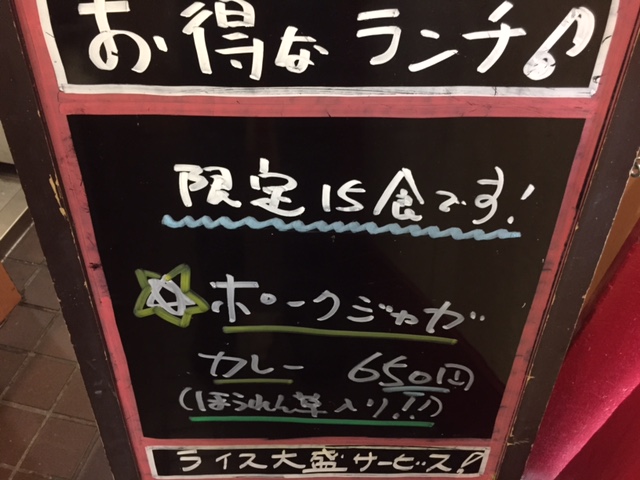 お得なランチ♪
限定15食です!
☆ポークジャガ
カレー 650円
(ほうれん草入り!!)
ライス大盛サービス!